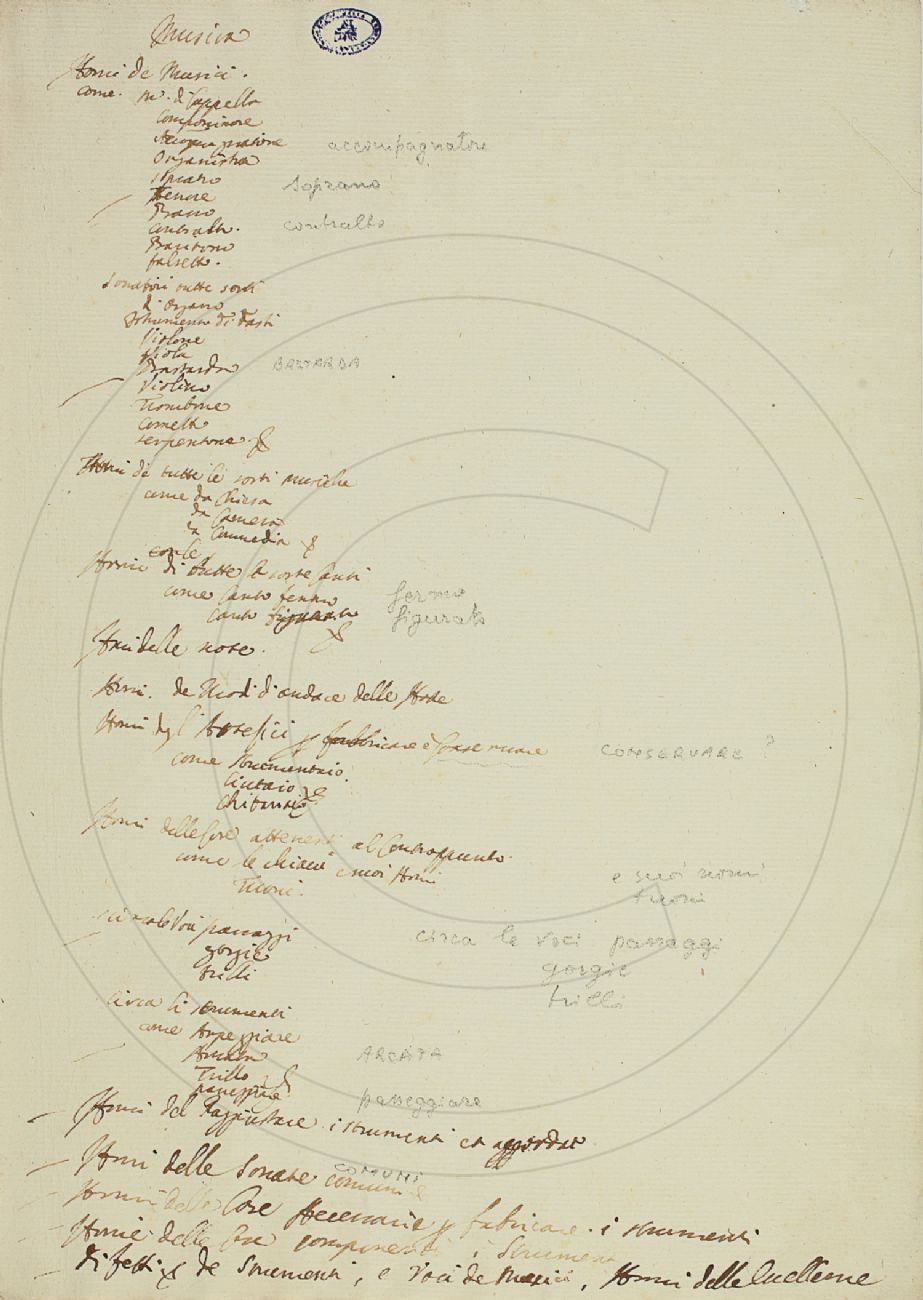 Musica
Nomi de Musici.
come. M.º di Cappella
Componitore
accompagnatore
Organista
Soprano soprano
Tenore
Basso
Contralto. contralto
Baritono
falsetto.
Sonatori tutte sorti
di organo
Istrumento di Tasti
Violone
Viola
Bastarda BASTARDA
Violino
Trombone
Cornetto
serpentone. &
Nomi de tutte le sorti musiche
come da Chiesa
da Camera
da Commedia &
con le
Nomi di tutte le sorte Canti
come Canto fermo fermo
Canto figurato figurato
&
Nomi delle note.
Nomi. de Modi d'andare delle Note
Nomi degl'Artefici p fabbricare e Conservare CONSERVARE ?
come strumentaio.
Liutaio &
Chitarraio
Nomi delle Cose attenenti al Contrappunto.
come le chiavi e suoi Nomi e suoi nomi
Tuoni. tuoni
circa le Voci passaggi circa le voci passaggi
gorgie gorgie
trilli trilli
Circa li strumenti
come Arpeggiare
Arcata ARCATA
Trillo &
passeggiare passeggiare
Nomi del Raggiustare i strumenti et accordare
Nomi delle Sonate comuni COMUNI
Nomi delle Cose Necessarie p fabricare i strumenti
Nomi delle Cose componenti i Strumenti
difetti & de Strumenti, e Voci de Musici, Nomi delle